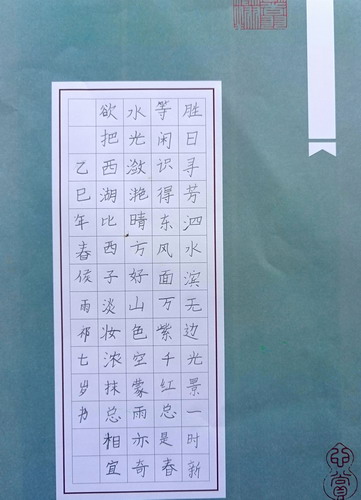 胜日寻芳泗水滨无边光景一时新
等闲识得东风面万紫千红总是春
水光潋滟晴方好山色空蒙雨亦奇
欲把西湖比西子淡妆浓抹总相宜
乙巳年春侯雨祁七岁书